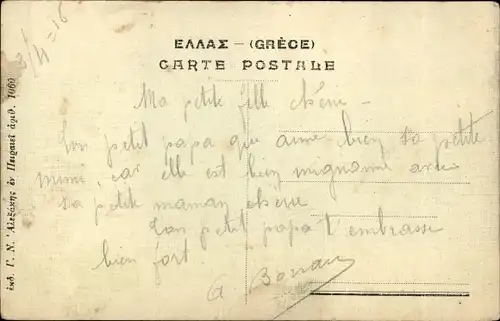 3/11 - 16
ΕΛΛΑΣ – (GRÈCE)
CARTE POSTALE
Ma petite fille chérie –
Ton petit papa que aime bien sa petite
mimi, car elle est bien mignonne avec
sa petite maman chérie
Ton petit papa t'embrasse
bien fort.
ἐκδ. Γ. Ν. Ἀλεξάκης ἐν Πειραιεῖ ἀριθ. 1060